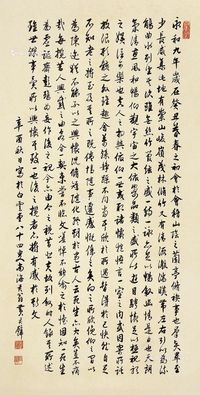 永和九年歲在癸丑暮春之初會于會稽山陰之蘭亭修禊事也羣賢畢至
少長咸集此地有崇山峻領茂林修竹又有清流激湍映帶左右引以為流
觴曲水列坐其次雖無絲竹管弦之盛一觴一詠亦足以暢敘幽情是日也天朗
氣清惠風和暢仰觀宇宙之大俯察品類之盛所以遊目騁懷足以極視聽
之娛信可樂也夫人之相與俯仰一世或取諸懷抱悟言一室之內或因寄所託
放浪形骸之外雖趣舍萬殊靜躁不同當其欣於所遇暫得於己快然自足
不知老之將至及其所之既惓情隨事遷感慨係之矣向之所欣俛仰之間以
為陳迹猶不能不以之興懷況修短隨化終期於盡古人云死生亦大矣豈不痛
哉每攬昔人興感之由若合一契未嘗不臨文嗟悼不能喻之於懷固知一死生
為虛誕齊彭殤為妄作後之視今亦由今之視昔悲夫故列敘時人錄其所述
雖世殊事異所以興懷其致一也後之攬者亦將有感於斯文
辛酉秋日寫於白雲八十四叟